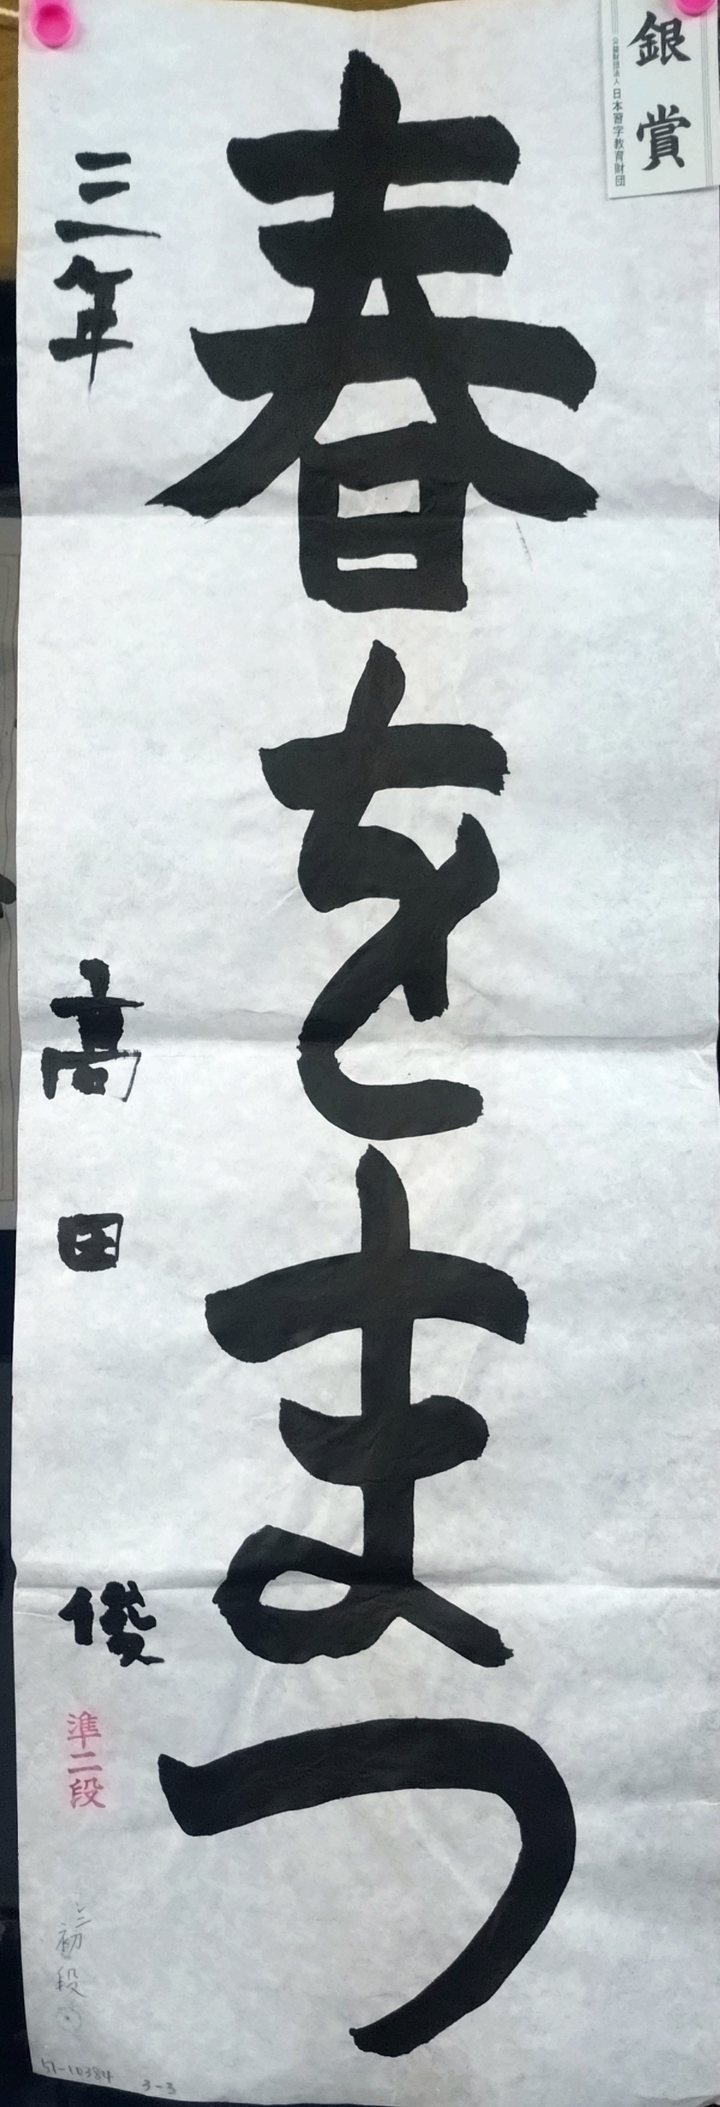 銀賞
公益財団法人 日本習字教育財団
春をまつ
三年 高田 俊
準二段
初段
51-10384 3-3